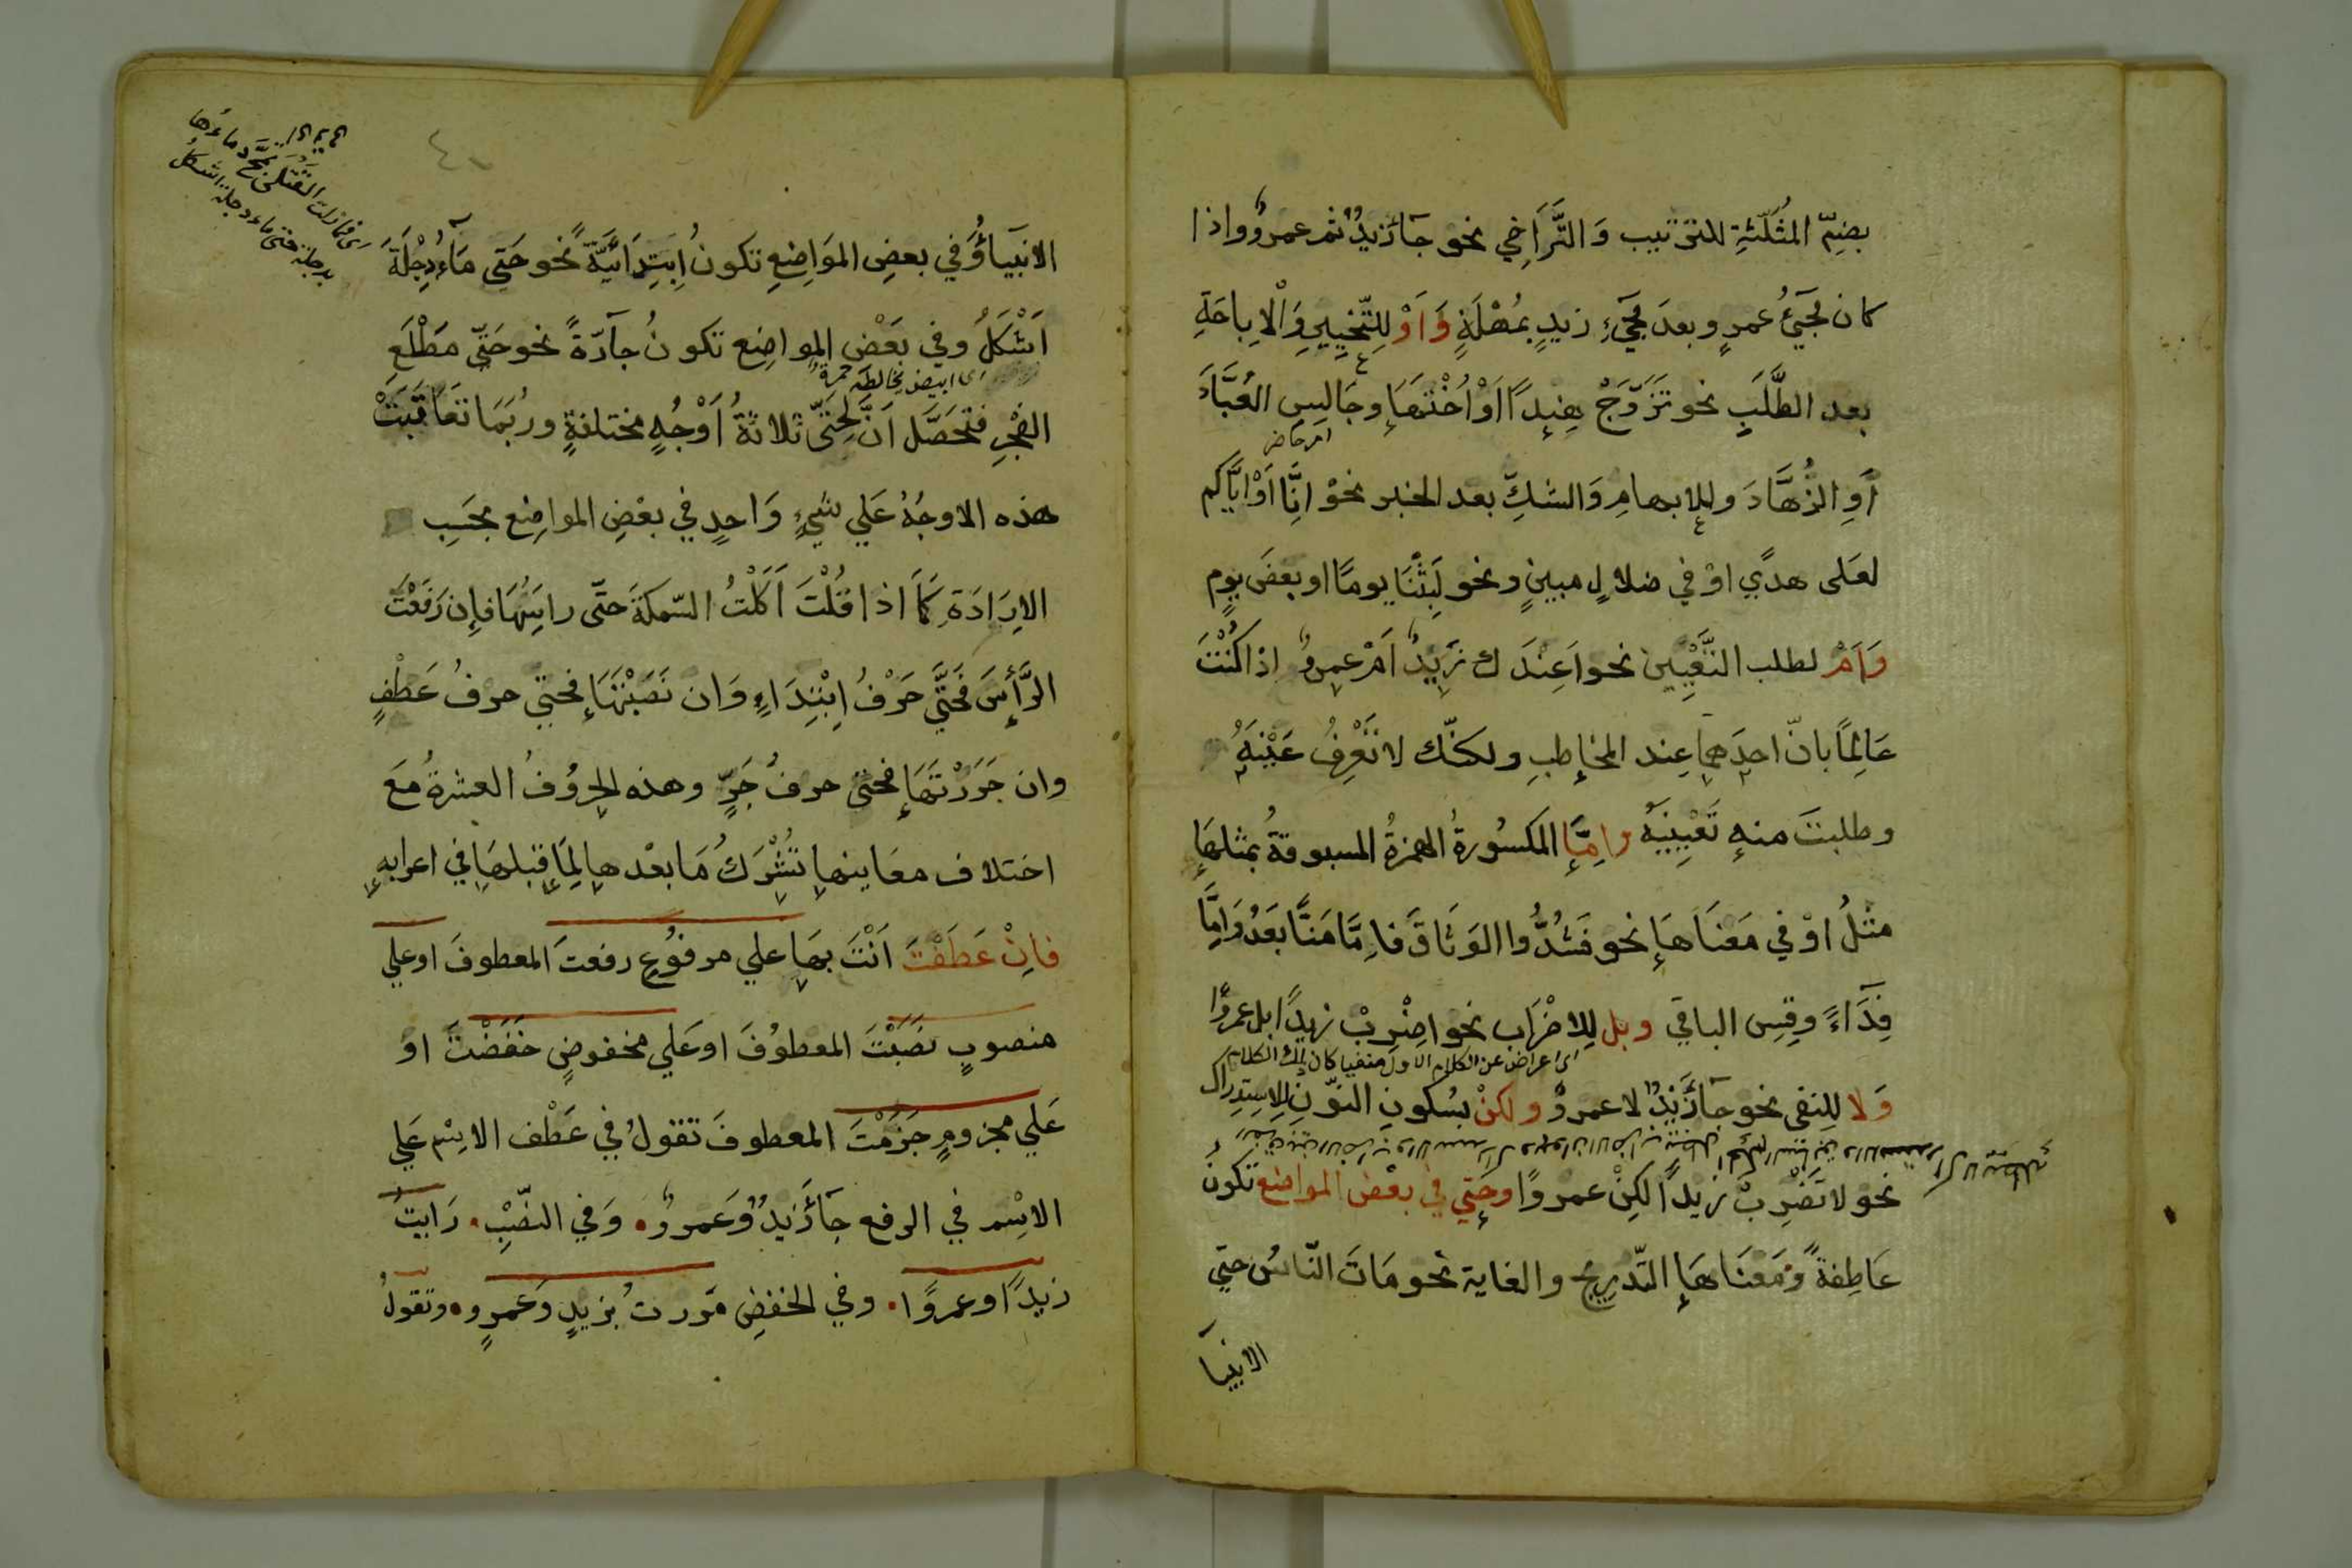 بضِمّ المُثَلّثةِ للترتيب وَالتَّرَاخِي نحو جآءَزيدٌ ثم عمروٌ واذا
كان مَجَيُ عمرٍو بعدَ مَجَيءِ زيدٍ بمُهْلَةٍ وَاَوْ لِلتّخيِيرِ وَالْاِباحَةِ
بعد الطَّلَبِ نحو تَزَوَّجْ هِنِداً اَوْ اُخْتَهَا وجَالِسِ العُبَّادَ
امر حاضر
اَوِ الزُّهَّادَ وللابهامِ وَالشكِّ بعد الخبر نحوْ اِنَّا اَوْ اِيَّاكم
لعَلى هدًي اوْ في ضلالٍ مبينٍ ونحو لَبِثْنَا يومًا او بعضَ يومٍ
وَاَمْ لطلب التَّعْيِين نحو اَعِنْدَك زَيدٌ اَمْ عمروٌ اذا كُنْتَ
عَالِمًا بانّ احدَهما عِند المخاطبِ ولكنّك لا تَعْرِفُ عَيْنَهُ
وطلبتَ منهِ تَعْيِينَهُ وامَّا المكسُورةُ الهمزةُ المسبوقةُ بمثلهَا
مثلُ اوْ في مَعنَاهَا نحو فَشُدُّوا الوَثَاقَ فاِمَّا مَنًّا بَعْدُ وَاِمَّا
فِدَآءً وقِسِ الباقي وبل لِلاضْرَاب نحو اضْرِبْ زيداً بل عمروًا
اى اعراض عن الكلام الاول منفيا كان ذلك الكلام
وَلا للِنفى نحو جآءَزَيدٌ لا عمروٌ ولكنْ بسُكونِ النوّنِ لِلاستِدراك
نحو لا تَضْرِبْ زيداً لكِنْ عمروًا وحَتي في بعْض المواضع تكونُ
عَاطِفةً وَمَعْنَاهَا التّدرِيج والغاية نحو مَاتَ النّاسُ حتي
الانبيا
الانبيَاؤُ وَفي بعضِ المَوَاضِعِ تكونُ اِبتِدَائيّةً نحو حَتى مَآءُ دِجْلَةَ
اَشْكَلُ وفي بَعْضِ المواضِع تكونُ جآرّةً نحو حَتّى مَطْلَعِ
اى ابيض يخالطه حمرة
الفَجْرِ فتحَصَّل اَنَّ لِحَتّى ثلاثةُ اَوْجُهٍ مختلفةٍ ورُبَمَا تعَاقَبَتْ
هذه الاوجُهُ عَلي شيءٍ وَاحدٍ في بعْضِ المواضِع بحَسَبِ
الاِرَادَةِ كَمَا اذا قُلْتَ اَكَلْتُ السّمكةَ حتّى راسَهَا فاِن رَفَعْتَ
الرَّأسَ فَحَتَّى حَرْفُ اِبْتِدَاءٍ وَان نَصَبْتَهَا فحتى حرفُ عَطْفٍ
وان جَرَرْتَهَا فحتى حرفُ جَرٍّ وهذه الحرُوفُ العشرةُ مَعَ
اختلاف معَانيها تُشْرِكُ مَا بعْدها لِمَا قبلهَا في اعرابهِ
فاِنْ عَطَفْتَ اَنْتَ بهَا علي مرفوُعٍ رفعتَ المعطوفَ او علي
منصوبٍ نصَبْتَ المعطوُفَ او عَلي مخفوضٍ خفَضْتَ اوْ
عَلي مجزومٍ جزَمْتَ المعطوفَ تقولُ في عَطْف الاسْم عَلي
الاسْم في الرفع جآءَ زَيدٌ وَعَمروٌ • وَفي النصْبِ • رَايتُ
زيداً وعمروًا • وفي الخفضِ مَررتُ بزيدٍ وَعَمرٍو • وتقولُ
اى فما زلت القتلى تمجّ دماءها
بدجلة حتى ماء دجلة اشكل